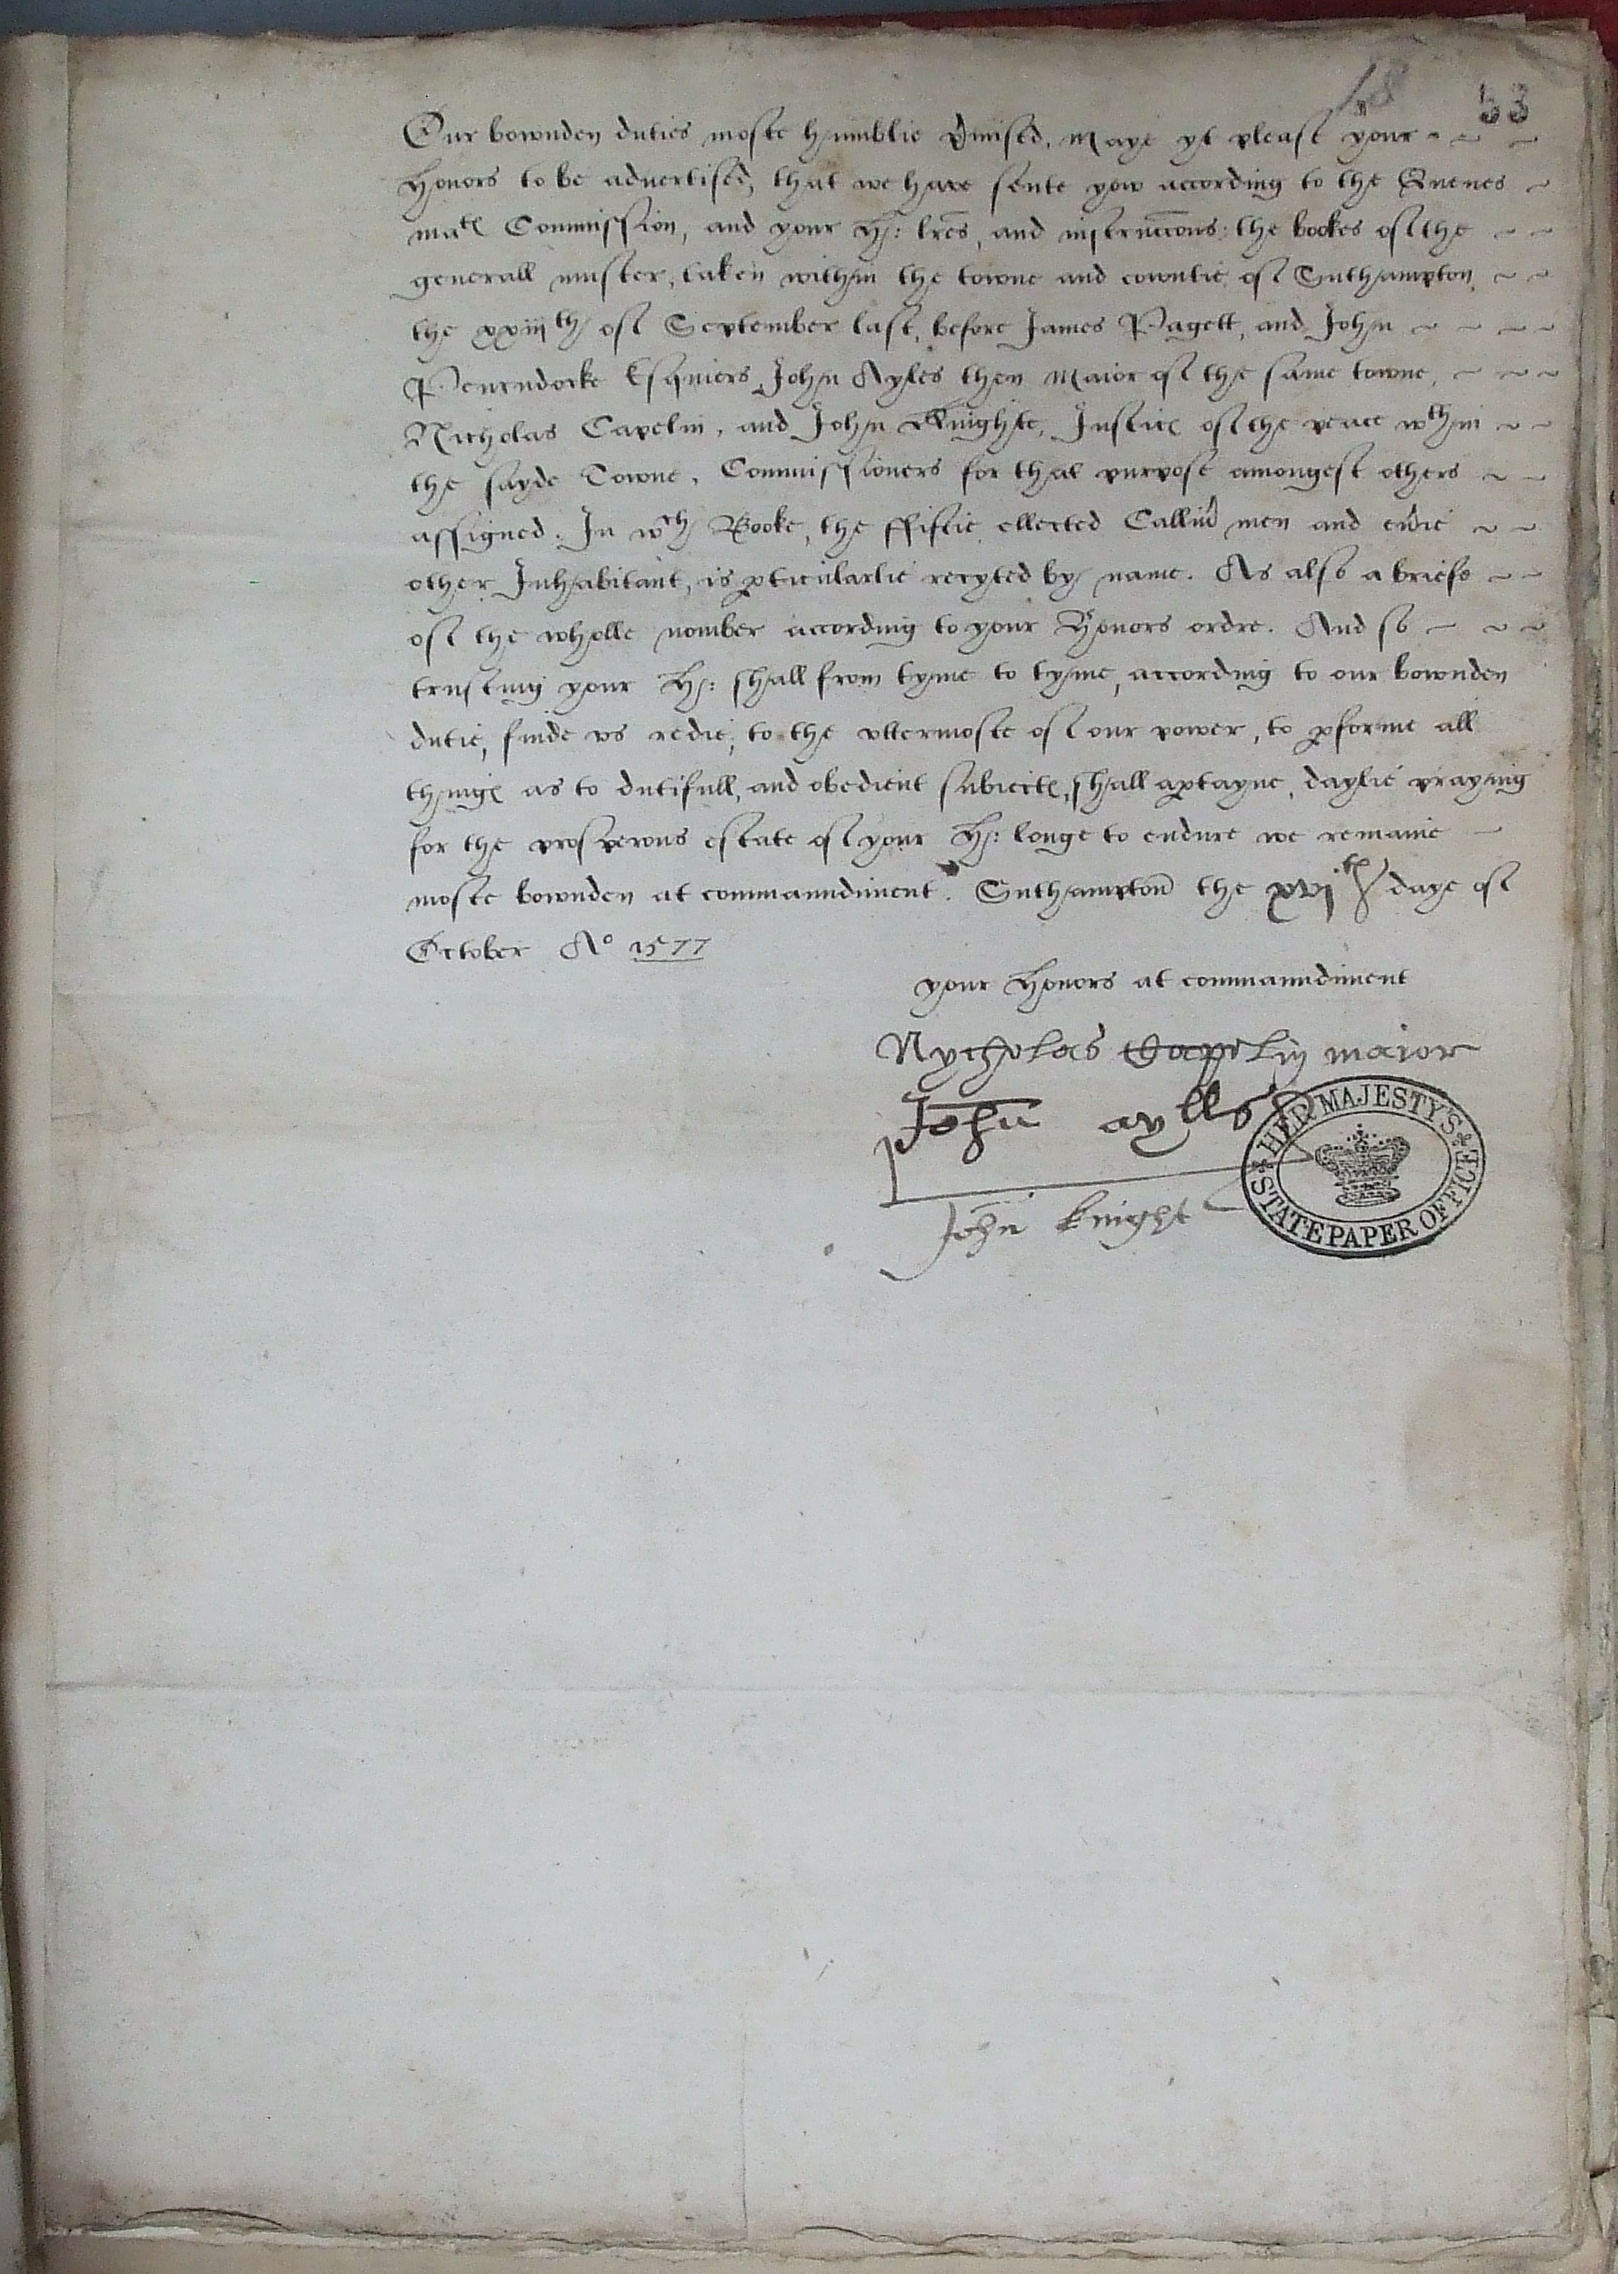 18 53
Our bownden duties moste humblie p̱mised, Maye yt please your
Honors to be aduertised, that we have sente yow according to the Quenes
matꝭ Commission, and your H: lr̃es, and instruc̃cons: the bookes of the
generall muster, taken within the towne and cowntie of Suthampton,
the xxiijth of September last, before James Pagett, and John
Penrudocke Esquiers John Ayles then Maior of the same towne,
Nicholas Capelin, and John Knighte, Justicꝭ of the peace wthin
the sayde Towne, Commissioners for that purpose amongest others
assigned. In wch Booke, the ffiftie ellected Calliũ men and eũie
other Inhabitant, is ꝑticularlie recyted by name. As also a briefe
of the wholle nomber according to your Honors ordre. And so
trusting your H: shall from tyme to tyme, according to our bownden
dutie, finde vs redie, to the vttermoste of our power, to ꝑforme all
thingꝭ as to dutifull, and obedient subiectꝭ, shall aꝑtayne, daylie praying
for the prosperous estate of your H: longe to endure we remaine
moste bownden at commaundiment. Suthampton̄ the xvjth daye of
October Ao 1577
your Honors at commaundiment
Nycholas Capelin maior
John aylles
John knight
HER MAJESTY'S STATE PAPER OFFICE